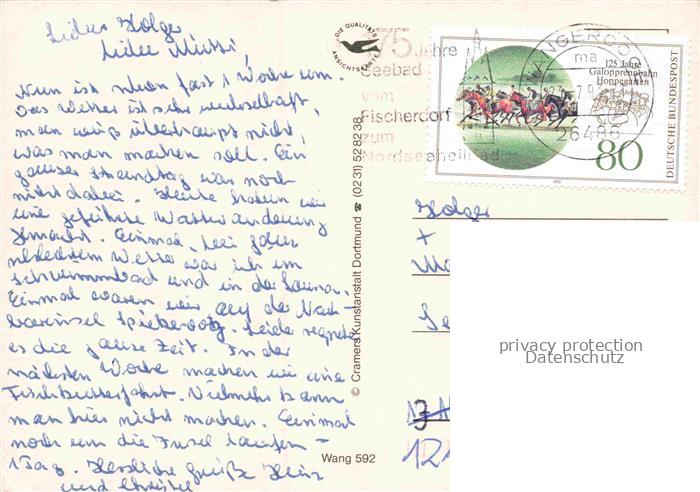 Lieber Holger
liebe Mutti
Nun ist schon fast 1 Woche um.
Das Wetter ist sehr wechselhaft,
man weiß überhaupt nicht,
was man machen soll. Ein
ganzer Strandtag war noch
nicht dabei. Heute haben wir
eine geführte Wattwanderung
gemacht. Einmal, bei ganz
schlechtem Wetter war ich im
Schwimmbad und in der Sauna.
Einmal waren wir auf der Nach-
barinsel Spiekeroog. Leider regnete
es die ganze Zeit. In der
nächsten Woche machen wir eine
Fischkutterfahrt. Vielmehr kann
man hier nicht machen. Einmal
noch um die Insel laufen –
1 Tag. Herzliche Grüße Heinz
und
DIE QUALITÄTS
ANSICHTSKARTE
© Cramers Kunstanstalt Dortmund ☎ (02 31) 52 82 38
Wang 592
175 Jahre
Seebad
vom
Fischerdorf
zum
Nordseeheilbad
WANGEROOGE
ma
26486
125 Jahre
Galopprennbahn
Hoppegarten
80
DEUTSCHE BUNDESPOST
1993
Holger
+
privacy protection
Datenschutz